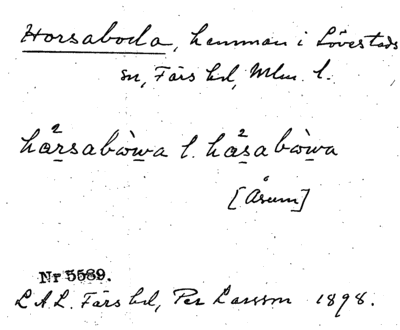 Horsaboda, hemman i Lövestads
sn, Färs hd, Mlm l.
hα̊²rsabòwa l. hα̊²sabòwa
[Åsum]
Nr 5589.
L A L. Färs hd, Per Larsson 1898.